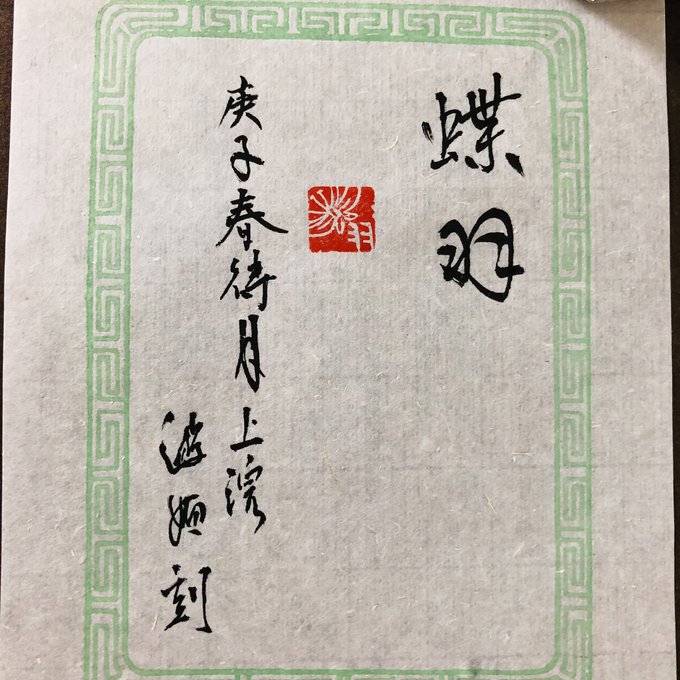 蝶羽
羽
庚子春待月上浣
刻